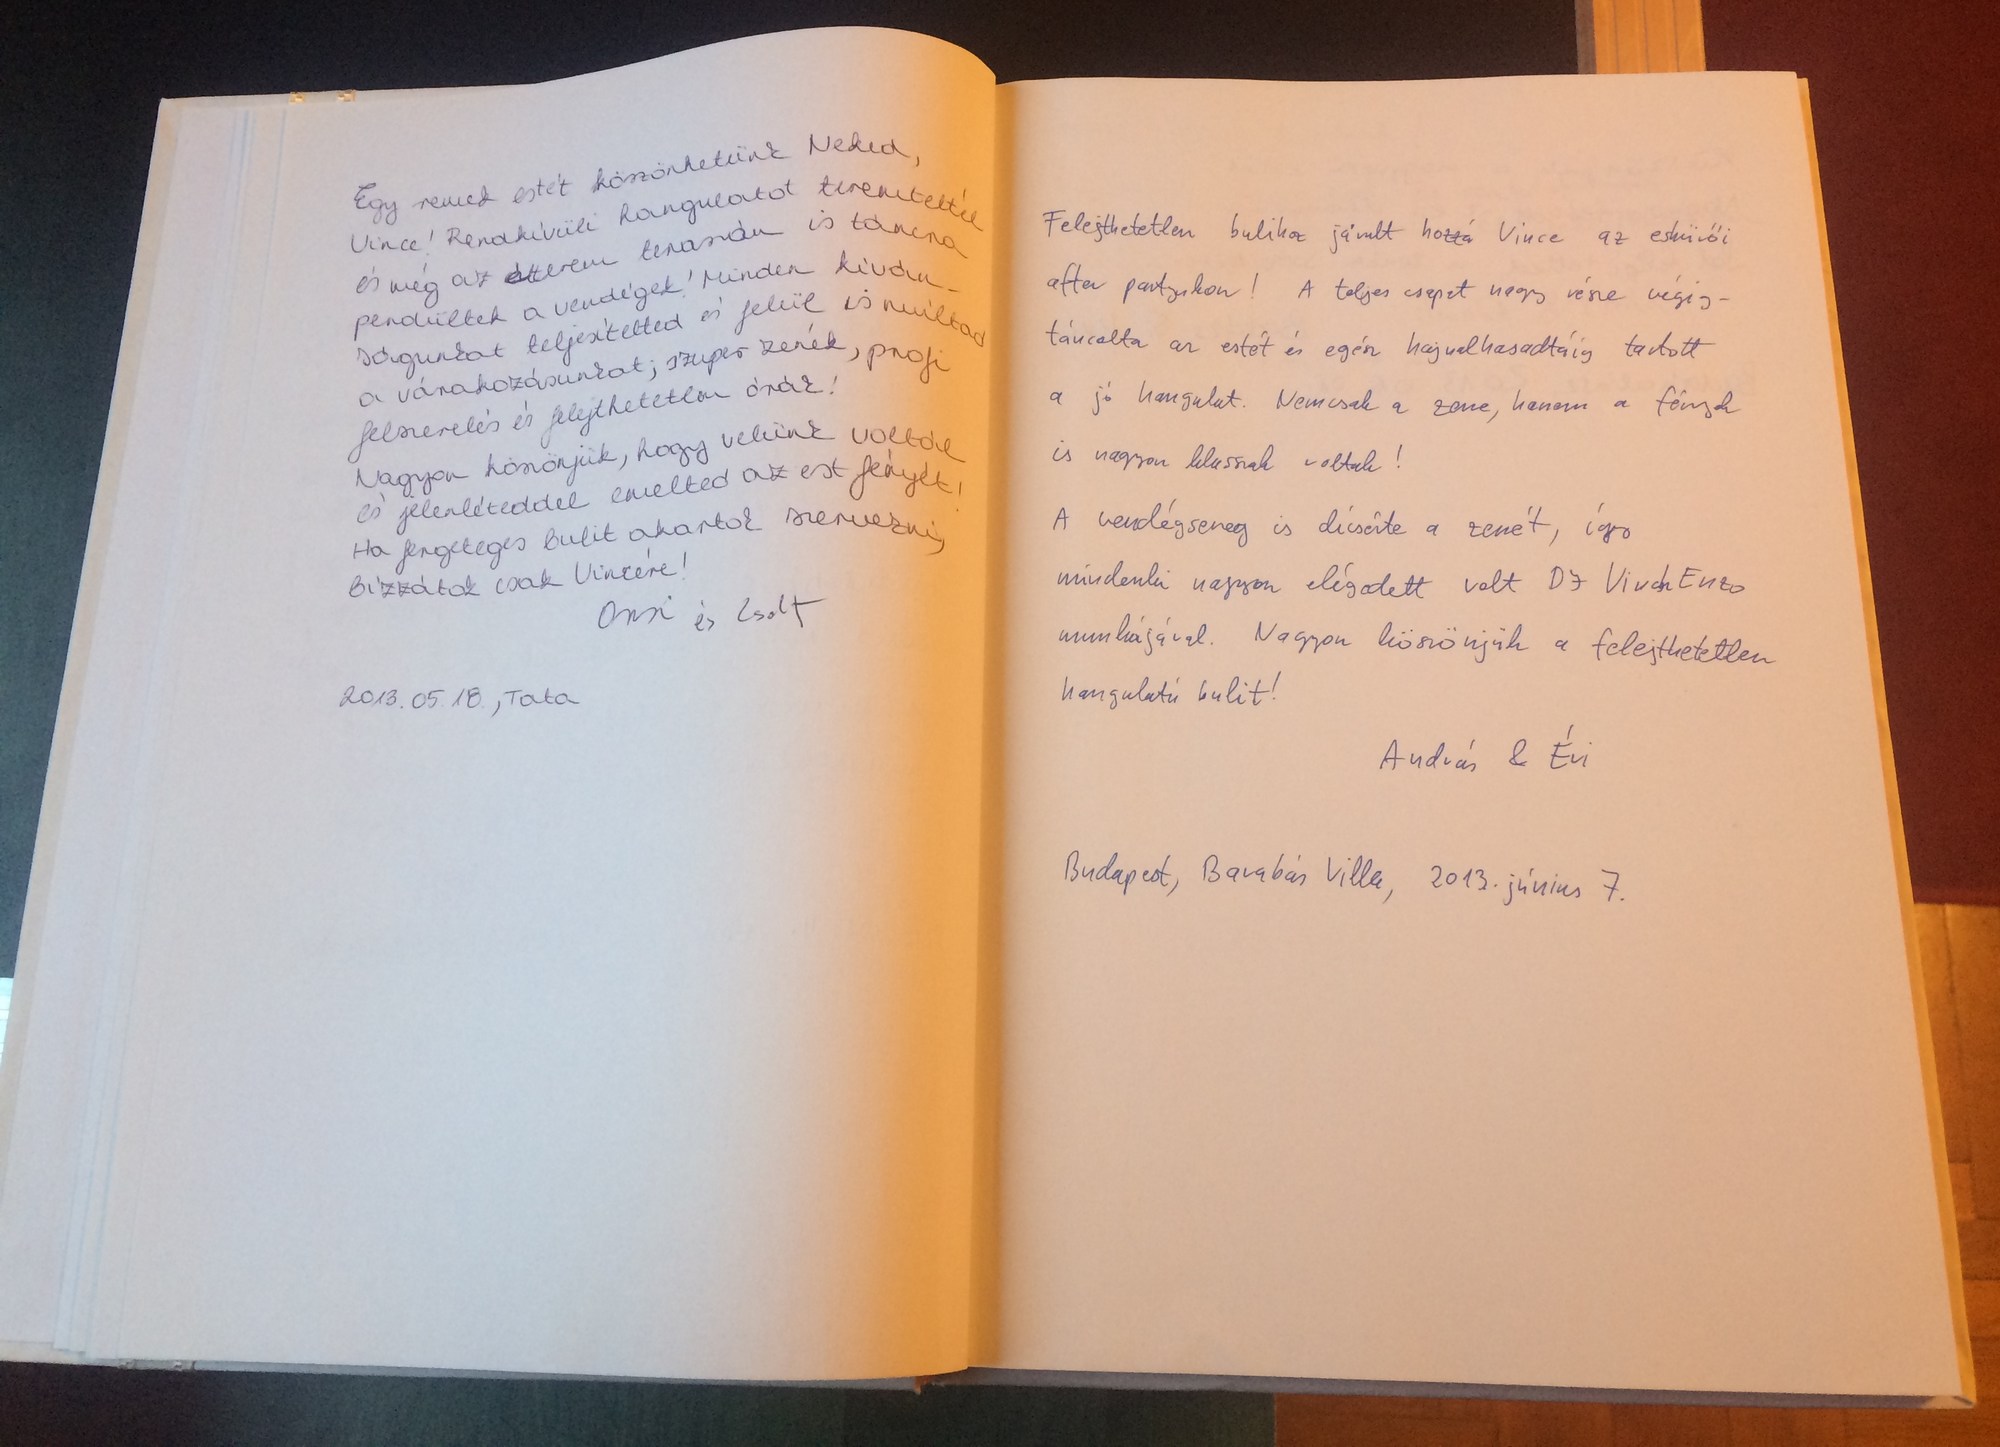 Egy remek estét köszönhetünk Neked,
Vince! Rendkívüli hangulatot teremtettél
és még az étterem teraszán is táncra
perdültek a vendégek! Minden kíván-
ságunkat teljesítetted és felül is múltad
a várakozásunkat; szuper zenék, profi
felszerelés és felejthetetlen órák!
Nagyon köszönjük, hogy velünk voltál
és jelenléteddel emelted az est fényét!
Ha fergeteges bulit akartok szervezni,
Bízzátok csak Vincére!
és Zsolt
2013.05.18., Tata
Felejthetetlen bulihoz járult hozzá Vince az esküvői
after partynkon! A teljes csapat nagy része végig-
táncolta az estét és egész hajnalhasadtáig tartott
a jó hangulat. Nemcsak a zene, hanem a fények
is nagyon klasszak voltak!
A vendégsereg is dícsérte a zenét, így
mindenki nagyon elégedett volt DJ VinchEnzo
munkájával. Nagyon köszönjük a felejthetetlen
hangulatú bulit!
András & Évi
Budapest, Barabás Villa, 2013. június 7.